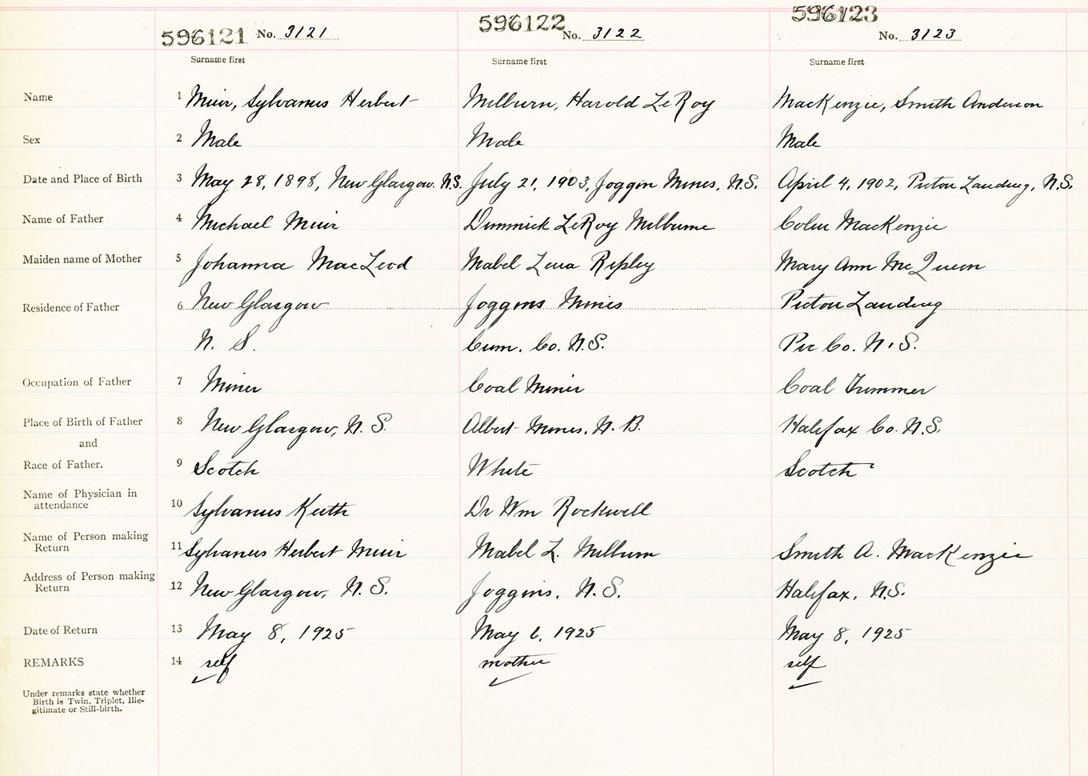 596121 No. 3121
596122 No. 3122
596123 No. 3123
Surname first Surname first Surname first
Name 1 Muir, Sylvanus Herbert Milburn, Harold LeRoy MacKenzie, Smith Anderson
Sex 2 Male Male Male
Date and Place of Birth 3 May 28, 1898, New Glasgow. N.S. July 21, 1903, Joggin Mines, N.S. April 4, 1902, Pictou Landing, N.S.
Name of Father 4 Michael Muir Dimmick LeRoy Milburne Colin MacKenzie
Maiden name of Mother 5 Johanna MacLeod Mabel Lena Ripley Mary Ann McQueen
Residence of Father 6 New Glasgow Joggins Mines Pictou Landing
N. S. Cum. Co. N.S. Pic Co. N.S.
Occupation of Father 7 Miner Coal Miner Coal Trimmer
Place of Birth of Father 8 New Glasgow, N.S. Albert Mines, N.B. Halifax Co. N.S.
and
Race of Father. 9 Scotch White Scotch
Name of Physician in
attendance 10 Sylvanus Keith Dr Wm Rockwell
Name of Person making
Return 11 Sylvanus Herbert Muir Mabel L. Milburn Smith A. MacKenzie
Address of Person making
Return 12 New Glasgow, N.S. Joggins, N.S. Halifax, N.S.
Date of Return 13 May 8, 1925 May 6, 1925 May 8, 1925
REMARKS 14 self mother self
Under remarks state whether
Birth is Twin, Triplet, Ille-
gitimate or Still-birth.